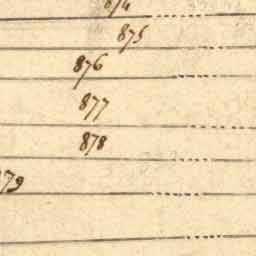 874
875
876
877
878
879